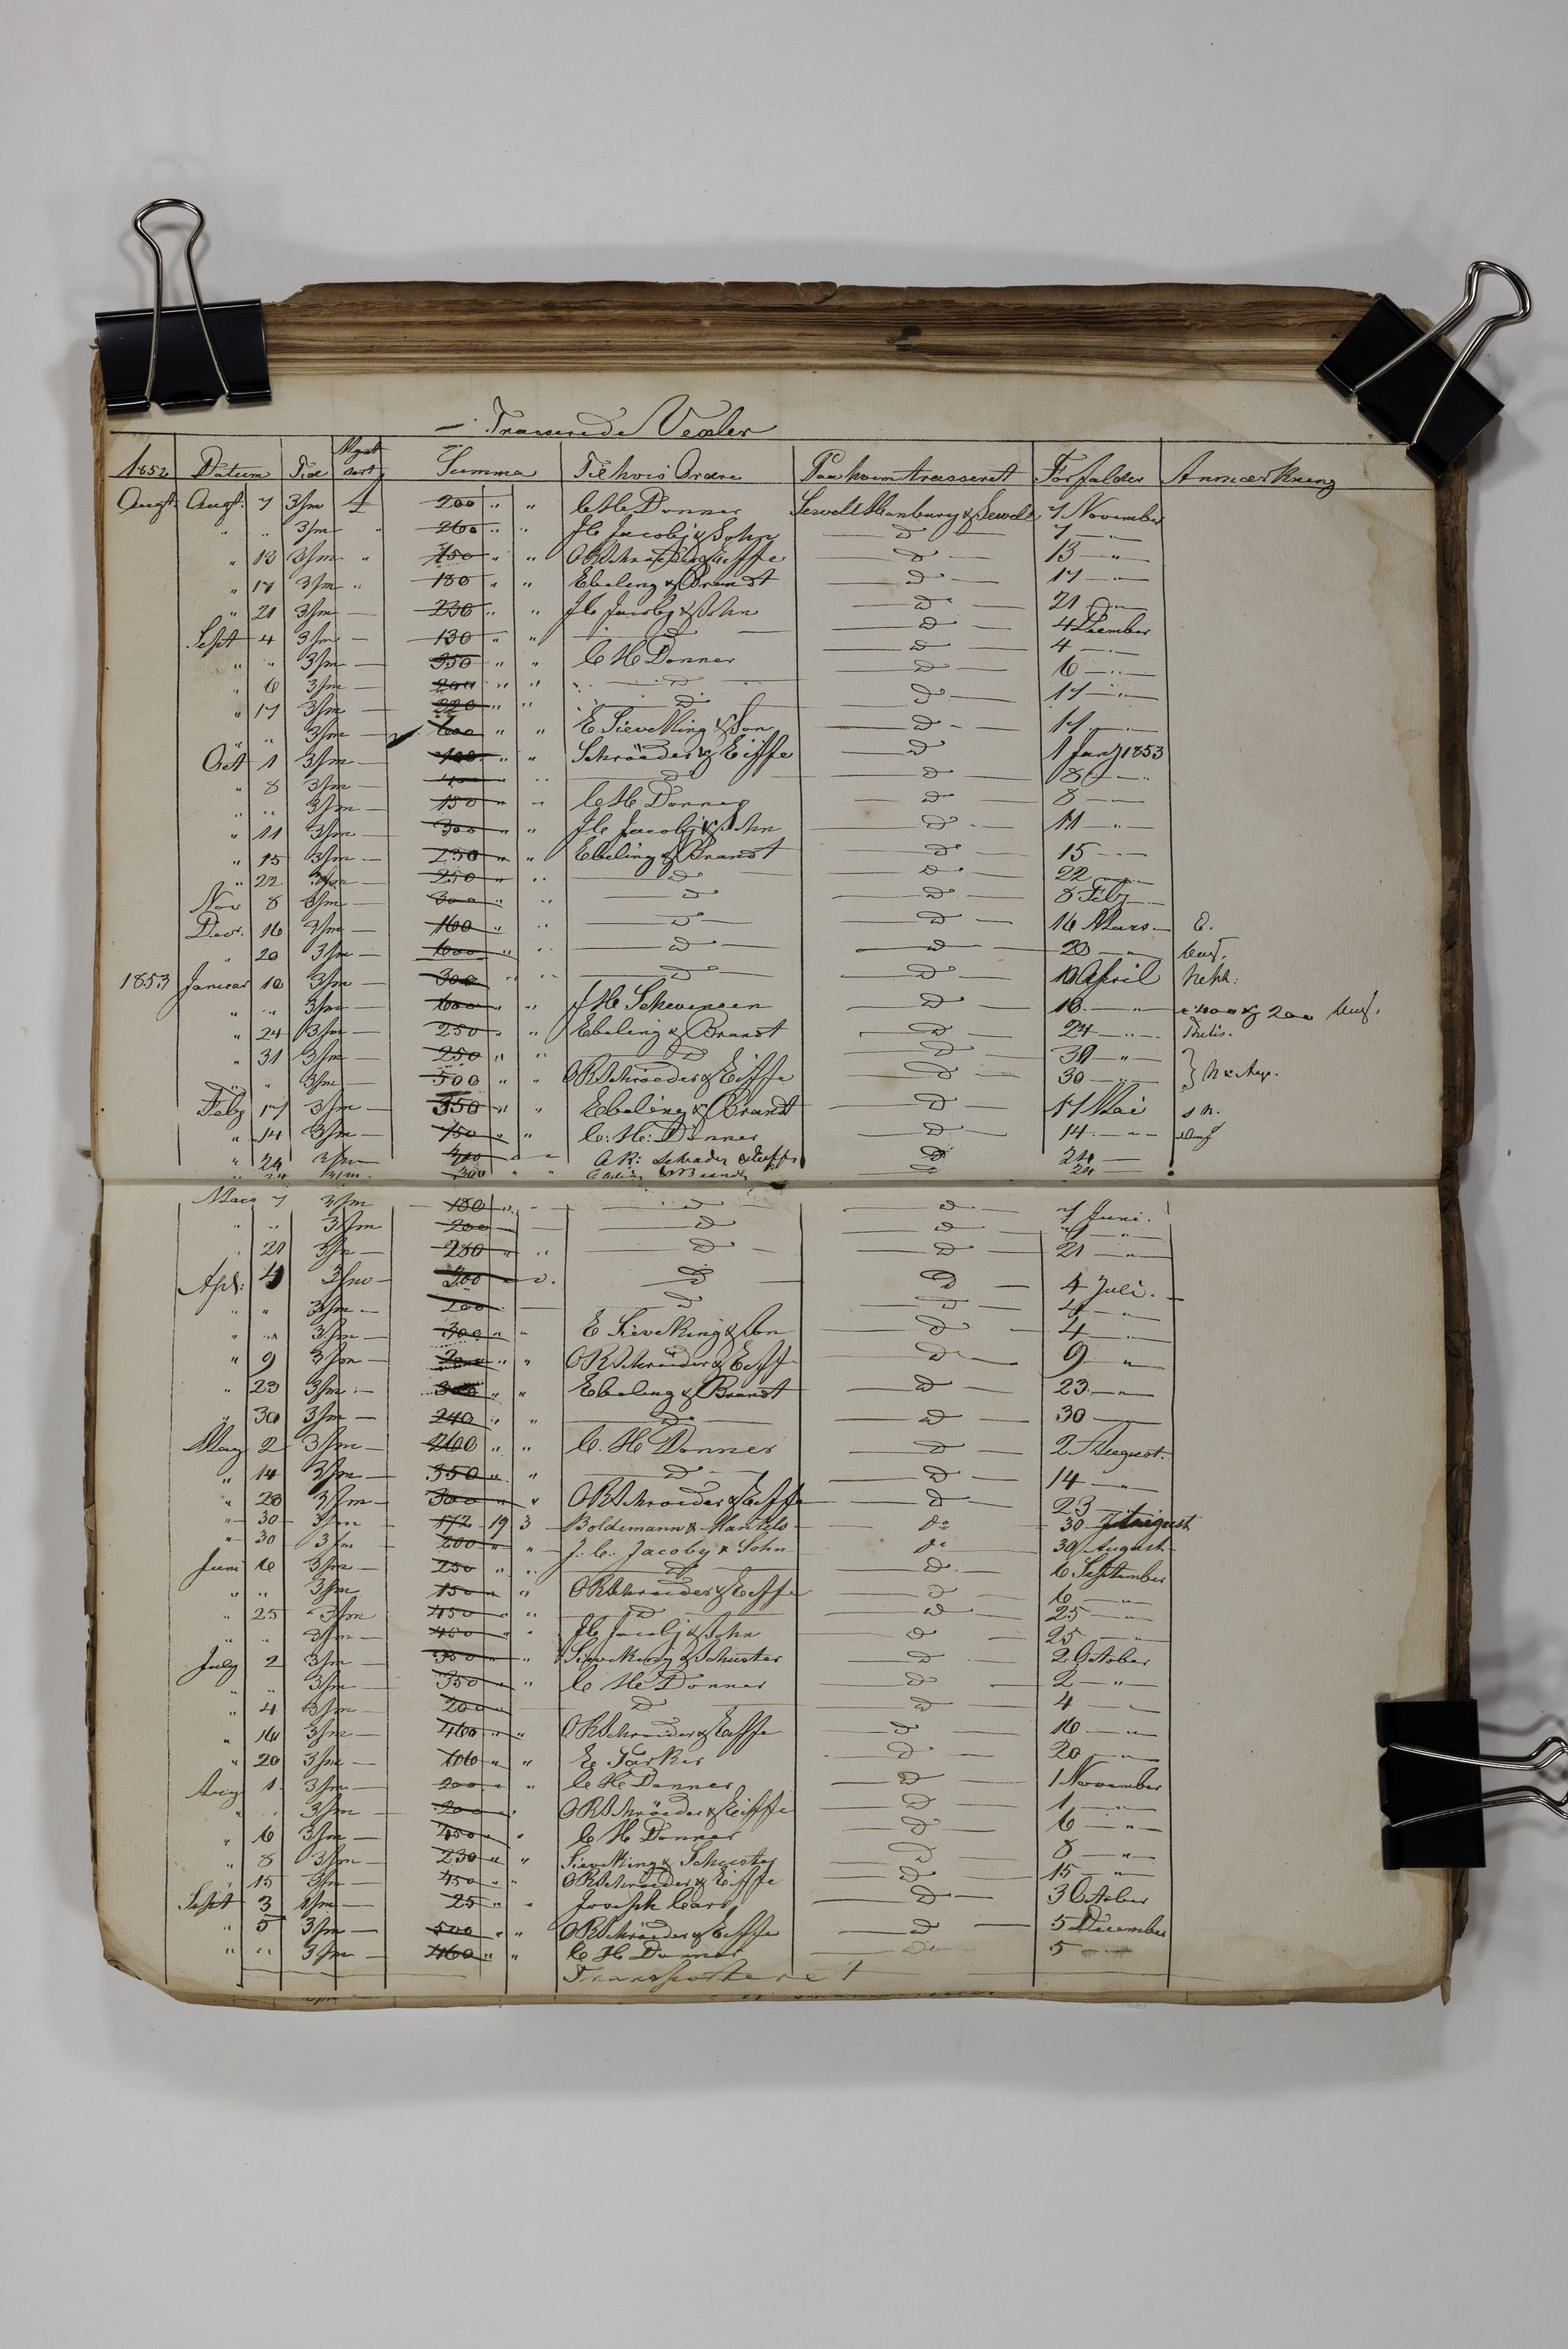 Trasserede Vexler
1852 Datum Tid Mynt sort Summa Til hvis Ordre Paa hvem trasseret Forfalder Anmærkning
Augt Augt. 7 3/m £ 200 " " C H Donner Sewell Hanbury & Sewell 7 November
" " 3/m " 260 " " J C Jacobj & Sohn D 7 "
" 13 3/m " 150 " " O R Schroeder & Eiffe D 13 "
" 17 3/m " 180 " " Ebeling & Brandt D 17 "
" 21 3/m — 230 " " J C Jacobj & Sohn D 21 "
Sept 4 3/m — 130 " " D D 4 December
" " 3/m — 350 " " C H Donner D 4 "
" 6 3/m — 200 " " D D 6 "
" 17 3/m — 220 " " D D 17 "
" " 3/m — 600 " " E Sieveking & Son D 17 "
Oct 1 3/m — 100 " " Schröeder & Eiffe D 1 Janj 1853
" 8 3/m — " " D D 8 "
" " 3/m — 150 " " C H Donner D 8
" 11 3/m — 300 " " J C Jacobj & Sohn D 11 "
" 15 3/m — 230 " " Ebeling & Brandt D 15
" 22 3/m — 250 " " D D 22
Nov 8 3/m — 300 " " D D 8 Feb
Decr. 16 3/m — 160 " " D D 16 Mars E.
" 20 3/m — " " D D 20 "
1853 Januar 10 3/m — 300 " " D D 10 April
" " 3/m — 600 " " J H D 10 " 400 & 200
" 24 3/m — 250 " " Ebeling & Brandt D 24 "
" 31 3/m — 250 " " D D 30 "
" " 3/m — 500 " " O R Schröeder & Eiffe D 30 "
Feby 17 3/m — 350 " " Ebeling & Brandt D 17 Mai
" 14 3/m — 150 " " C: H: Donner D 14 "
" 24 3/m — O R: Schrøder & Eiffe D 24
" 24 3/m. 300 " " Ebeling & Brandt D 24
Mars 7 3/m — 180 " D D 7 Juni.
" " 3/m 200 — D D 7 "
" 21 3/m — 280 " " D D 21 "
Apl: 4 3/m — 300 D D 4 Juli.
" " 3/m — 200 — D D 4 "
" " 3/m — 300 " " E Sieveking & Son D 4 "
" 9 3/m — " " O R Schröeder & Eiff D 9 "
" 23 3/m — 300 " " Ebeling & Brandt D 23 "
" 30 3/m — 240 " " D D 30
May 2 3/m — 260 " " C. H Donner D 2 August.
" 14 3/m — 350 " " D D 14 "
" 20 3/m — 300 " " O R Schroeder & Eiffe D 23 "
" 30 3/m 172 19 3 Boldemann & Hankels do 30 August
" 30 3/m 200 " " J: C: Jacoby & Sohn do 30 August
Juni 6 3/m — 250 " " D D 6 September
" " 3/m 150 " " O R Schroeder & Eiffe D 6 "
" 25 3/m 450 " " D D 25 "
" " 3/m — 450 " " J C Jacobj & Sohn D 25 "
July 2 3/m — " " Sieveking & Schuster D 2 October
" " 3/m — 350 " " C H Donner D 2 "
" 4 3/m — 200 " D D 4 "
" 16 3/m — 460 " " O R Schroeder & Eiffe D 16 "
" 20 3/m — " " E D 20 "
Aug 1 3/m — 200 " " C H Donner D 1 November
" " 3/m — 200 " " O R Schröeder & Eiffe D 1 "
" 6 3/m — 450 " " C H Donner D 6 "
" 8 3/m — 230 " " Sieveking & Schuster D 8 "
" 15 3/m — 450 " " O R Schroeder & Eiffe D 15 "
Sept 3 1/m — 25 " " Joseph D 3 October
" 5 3/m — 500 " " O R Schröeder & Eiffe D 5 December
" " 3/m — 460 " " C H Donner D 5
Transporteret